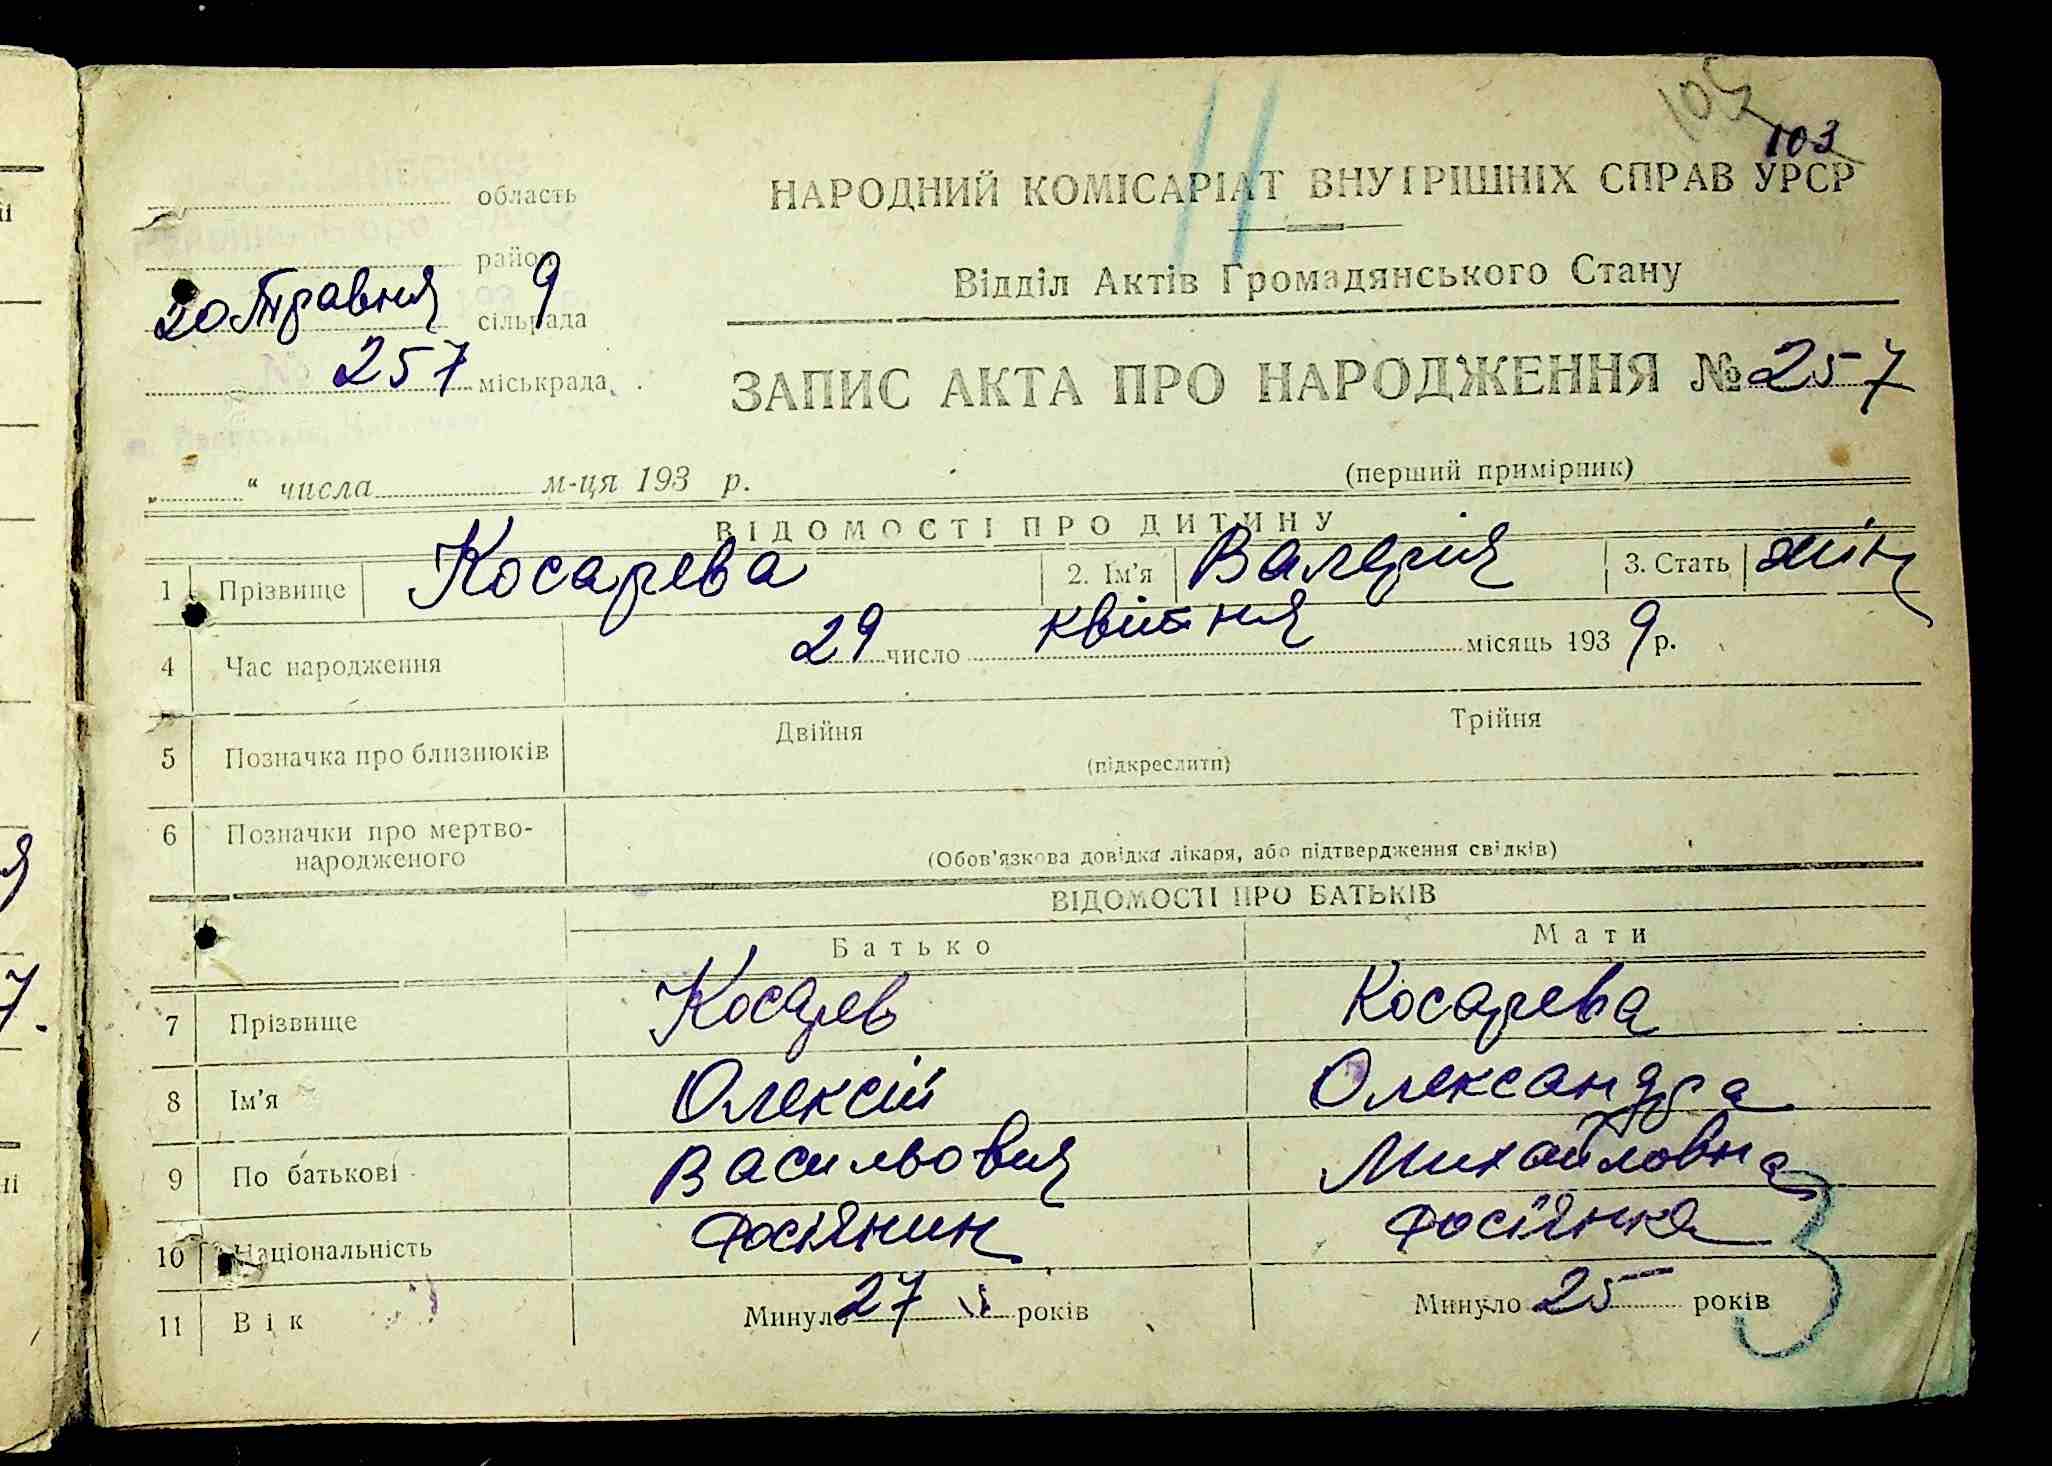 103
область
НАРОДНИЙ КОМІСАРІАТ ВНУТРІШНІХ СПРАВ УРСР
район
Відділ Актів Громадянського Стану
20 Травня 9 сільрада
257 міськрада
ЗАПИС АКТА ПРО НАРОДЖЕННЯ № 257
„ “ числа м-ця 193 р.
(перший примірник)
ВІДОМОСТІ ПРО ДИТИНУ
1 Прізвище Косарева 2. Ім'я Валерія 3. Стать жін
4 Час народження 29 число квітня місяць 1939 р.
5 Позначка про близнюків Двійня Трійня
(підкреслити)
6 Позначки про мертво-
народженого
(Обов'язкова довідка лікаря, або підтвердження свідків)
ВІДОМОСТІ ПРО БАТЬКІВ
Батько Мати
7 Прізвище Косарев Косарева
8 Ім'я Олексій Олександра
9 По батькові Васильович Михайловна
10 Національність росіянин росіянка
11 Вік Минуло 27 років Минуло 25 років
3